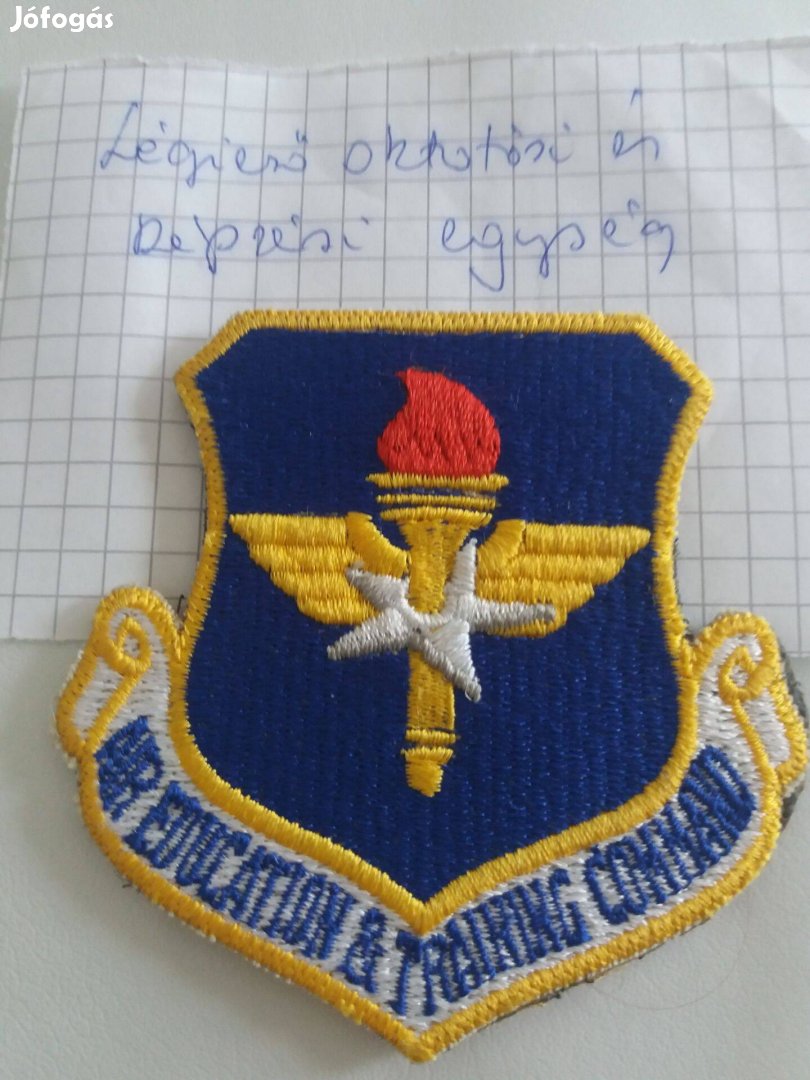 Jófogás
Légierő oktatási és
képzési egység
AIR EDUCATION & TRAINING COMMAND